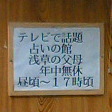 テレビで話題
占いの館
浅草の父母
年中無休
昼頃〜17時頃